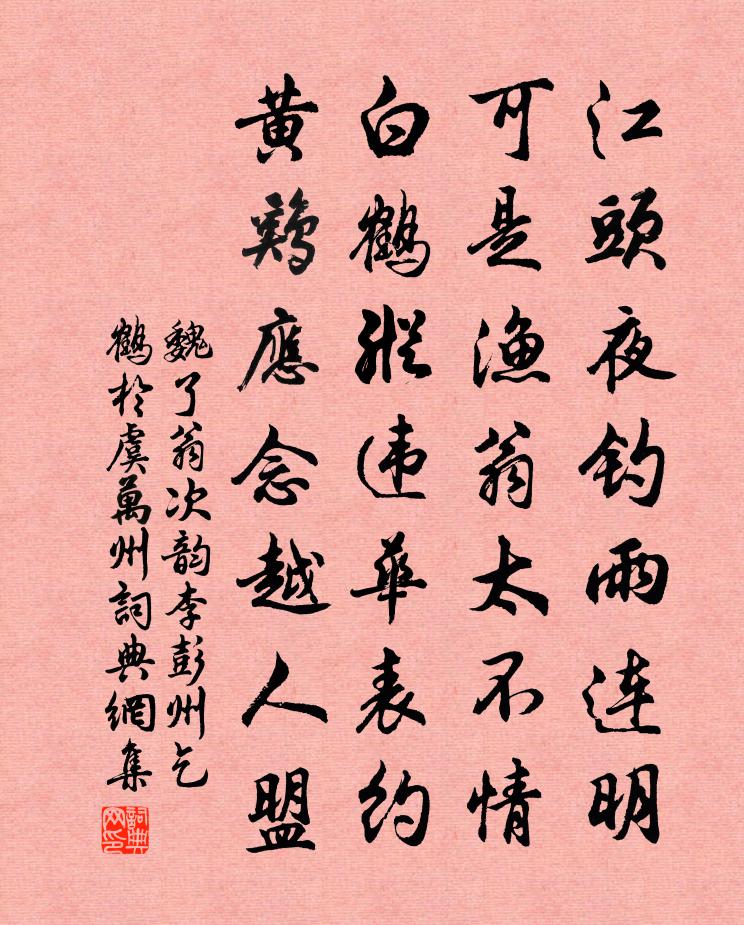 江頭夜钓雨连明
可是漁翁太不情
白鶴縱违華表約
黃鷄應念越人盟
魏了翁次韵李彭州乞
鶴於虞萬州詞典網集
詞典
网印